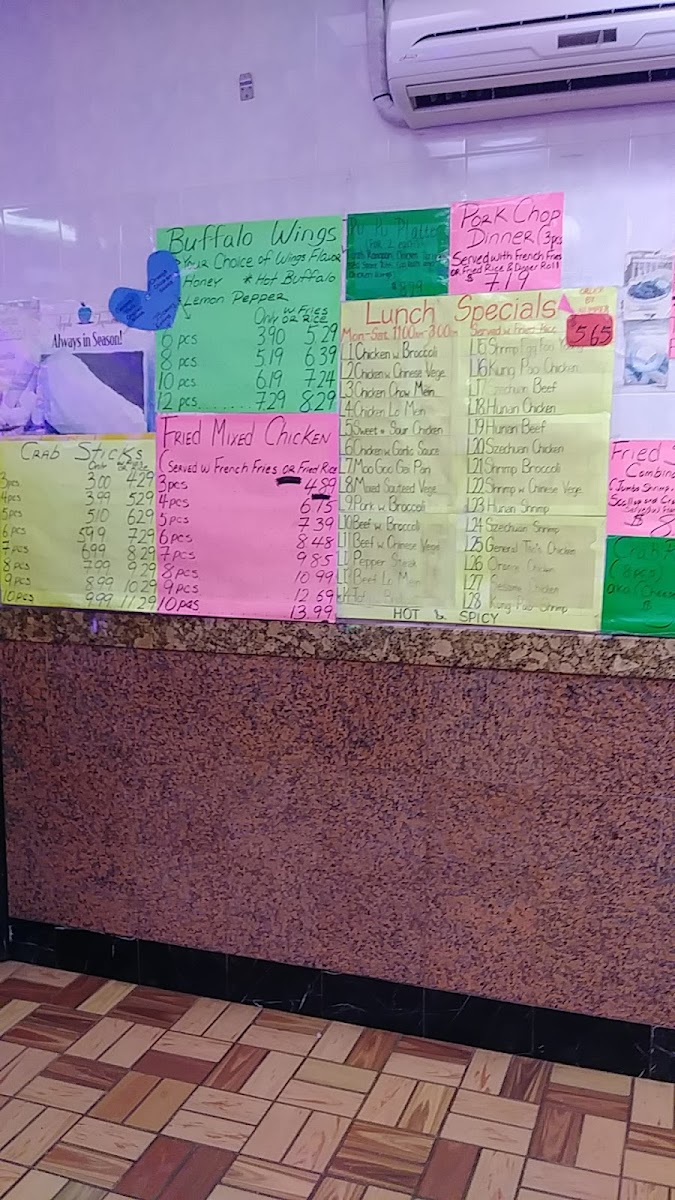 Buffalo Wings
Your Choice of Wings Flavor
Honey * Hot Buffalo
Lemon Pepper
Only W. FRIES OR RICE
6 pcs 3.90 5.29
8 pcs 5.19 6.39
10 pcs 6.19 7.24
12 pcs........ 7.29 8.29
Always in Season!
CRAB STICKS
Only
3pcs 3.00 4.29
4pcs 3.99 5.29
5pcs 5.10 6.29
6pcs 5.99 7.29
7pcs 6.99 8.29
8pcs 7.99 9.29
9pcs 8.99 10.29
10pcs 9.99 11.29
FRIED MIXED CHICKEN
(SERVED W FRENCH FRIES OR FRIED RICE
3pcs 4.89
4pcs 6.15
5pcs 7.39
6pcs 8.48
7pcs 9.85
8pcs 10.99
9pcs 12.59
10pcs 13.99
PORK CHOP
DINNER (3pcs
SERVED WITH FRENCH FRIES
OR FRIED RICE & DINNER ROLL
$ 7.19
Lunch Specials
Mon-Sat. 11:00am 3:00pm Served w. Fried Rice
5.65
L1 Chicken w. Broccoli
L2 Chicken w. Chinese Vege
L3 Chicken Chow Mein
L4 Chicken Lo Mein
L5 Sweet n Sour Chicken
L6 Chicken w. Garlic Sauce
L7 Moo Goo Gai Pan
L8 Mixed Sauteed Vege
L9 Pork w. Broccoli
L10 Beef w. Broccoli
L11 Beef w. Chinese Vege
Pepper Steak
Beef Lo Mein
L15 Shrimp Egg Foo Young
L16 Kung Pao Chicken
L17 Szechuan Beef
L18 Hunan Chicken
L19 Hunan Beef
L20 Szechuan Chicken
L21 Shrimp Broccoli
L22 Shrimp w. Chinese Vege
L23 Hunan Shrimp
L24 Szechuan Shrimp
L25 General Tso's Chicken
L26 Orange Chicken
L27 Sesame Chicken
L28 Kung Pao Shrimp
HOT & SPICY
Fried S
Combina
(Jumbo Shrimp